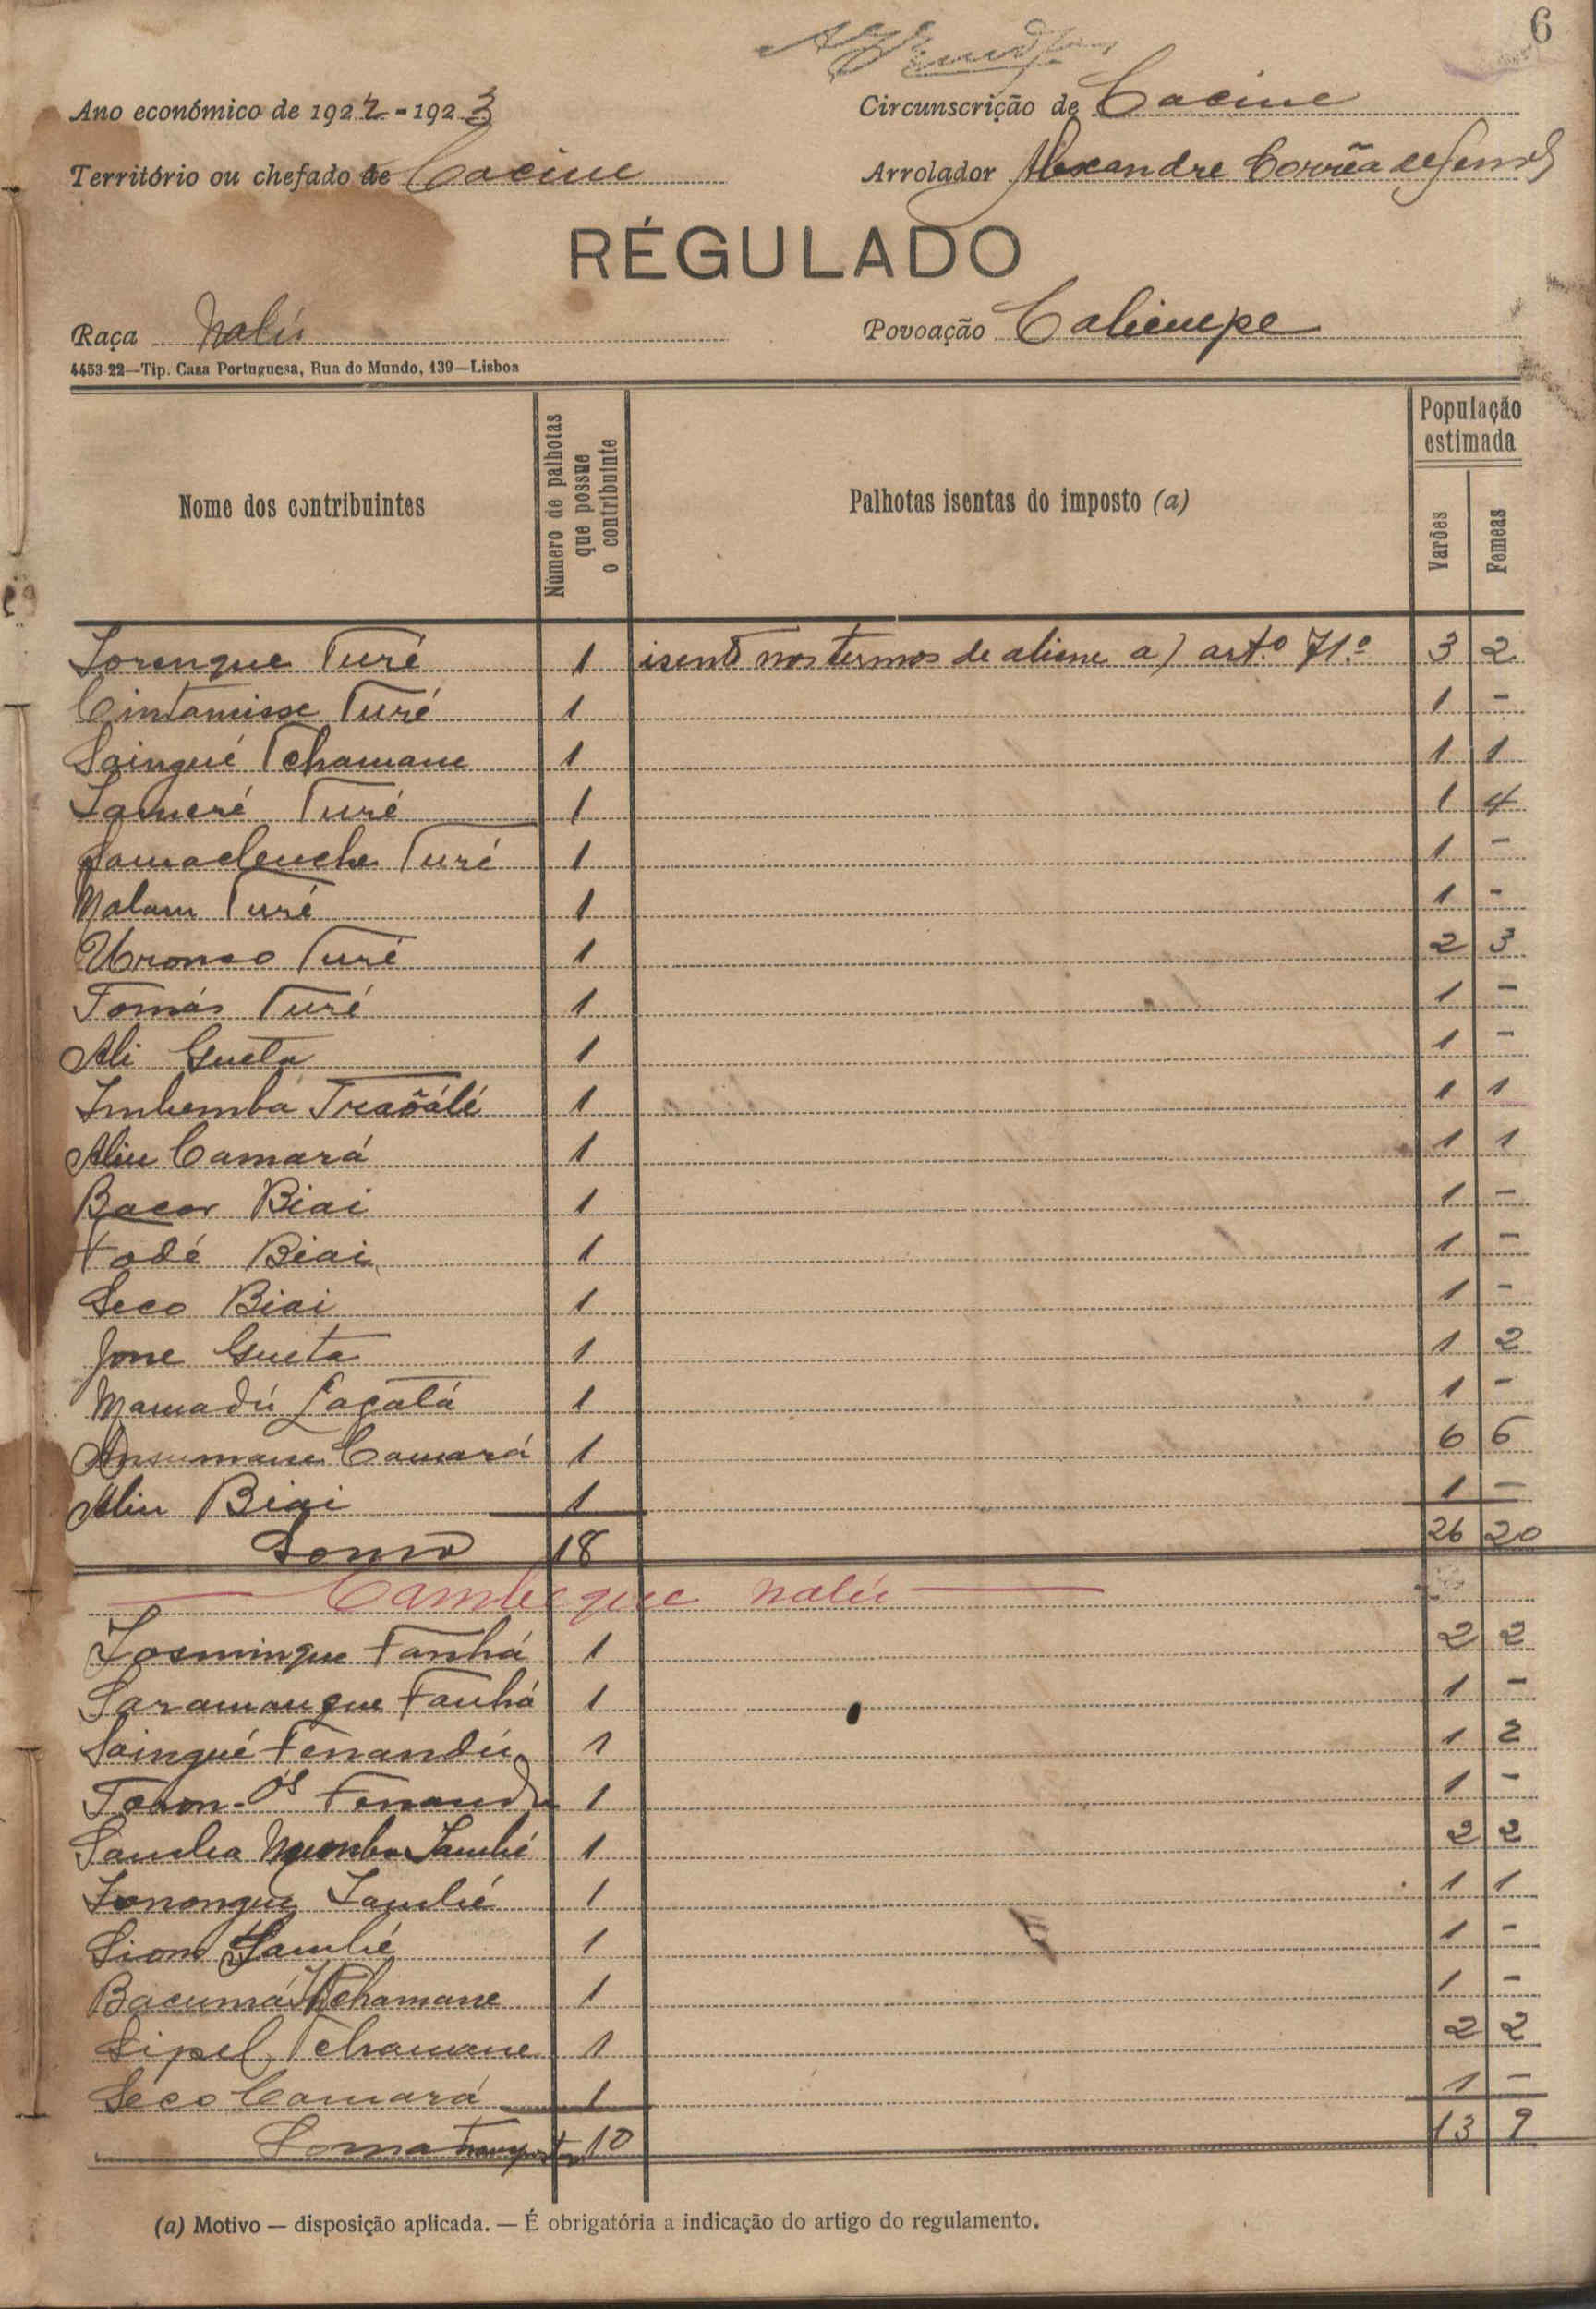 6
Ano económico de 1922-1923
Circunscrição de Cacine
Território ou chefado de Cacine
Arrolador Alexandre Corrêa de
RÉGULADO
Raça Nalú
Povoação Caliempe
4453-22—Tip. Casa Portuguesa, Rua do Mundo, 139—Lisboa
Nome dos contribuintes
Número de palhotas que possue o contribuinte
Palhotas isentas do imposto (a)
População estimada
Varões
Femeas
Lorenque Turé 1 isento nos termos de aliene a) art.º 71.º 3 2
Cintamisse Turé 1 1 -
Saingué Tchamane 1 1 1
Lameré Turé 1 1 4
Turé 1 1 -
Malam Turé 1 1 -
Turé 1 2 3
Tomás Turé 1 1 -
Ali Gueta 1 1 -
Imbemba Traoálé 1 1 1
Aliu Camará 1 1 1
Bacar Biai 1 1 -
Fodé Biai 1 1 -
Seco Biai 1 1 -
Jone Gueta 1 1 2
Mamadú Laçatá 1 1 -
Ansumane Camará 1 6 6
Aliu Biai 1 1 -
Soma 18 26 20
Cambeque Nalú
Losmingue Fanhá 1 2 2
Saramangue Fanhá 1 1 -
Saingué Fernandú 1 1 2
1 1 -
Samba Lambé 1 2 2
Lambé 1 1 1
Lambé 1 1 -
Bacumá Tchamane 1 1 -
Sipel Tchamane 1 2 2
Séco Camará 1 1 -
Soma 10 13 9
(a) Motivo — disposição aplicada. — É obrigatória a indicação do artigo do regulamento.